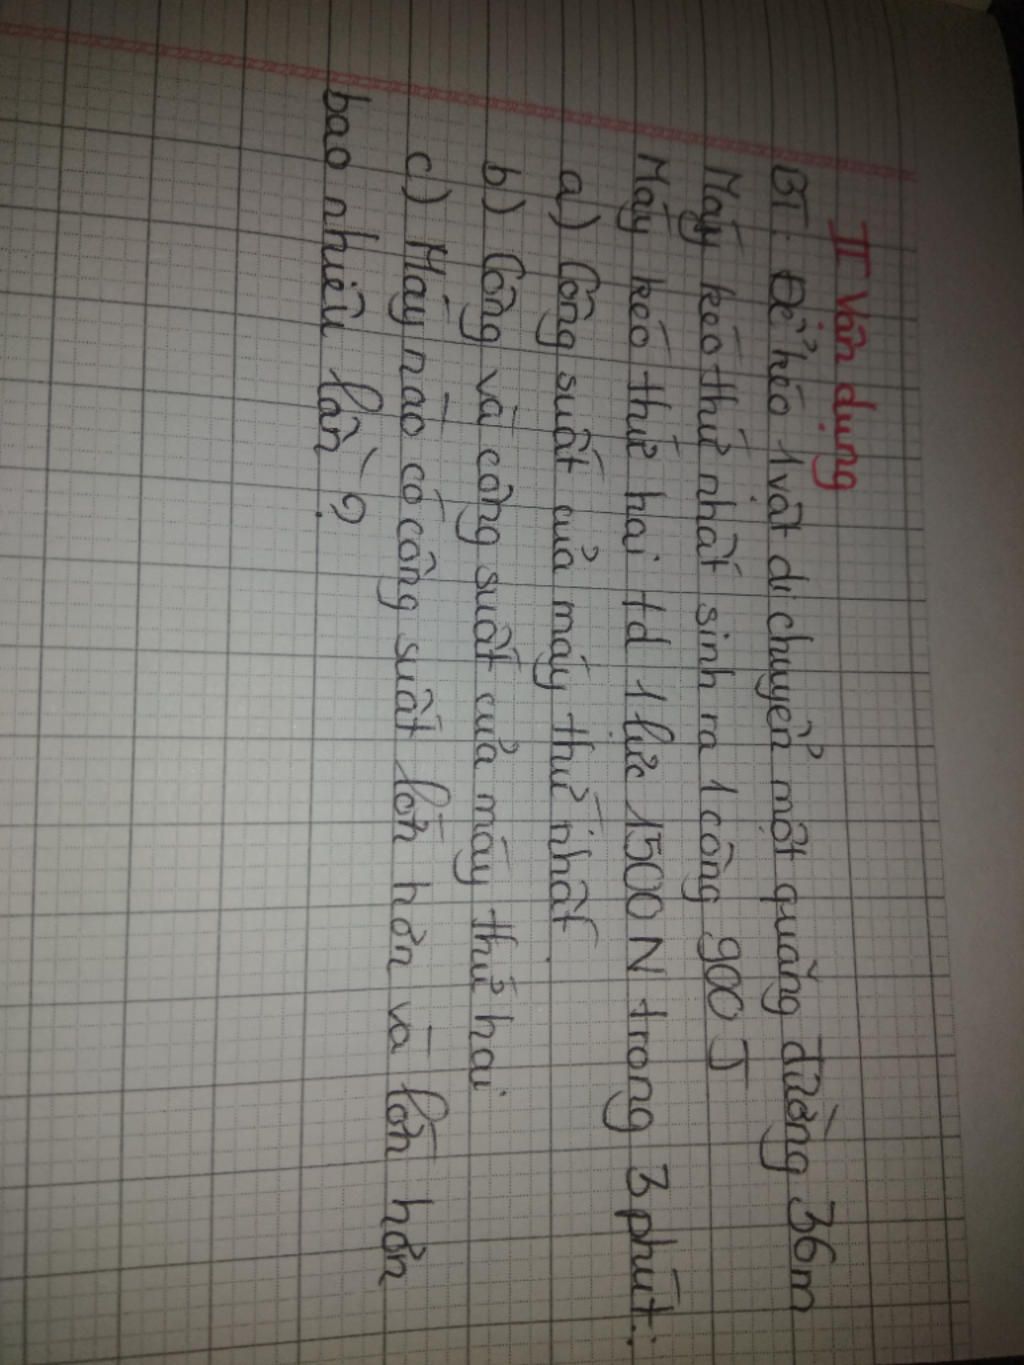 II Vận dụng
BT: Để kéo 1 vật di chuyển một quãng đường 36m
Máy kéo thứ nhất sinh ra 1 công 900 J
Máy kéo thứ hai td 1 lực 1500 N trong 3 phút.
a) Công suất của máy thứ nhất
b) Công và công suất của máy thứ hai
c) Máy nào có công suất lớn hơn và lớn hơn
bao nhiêu lần?